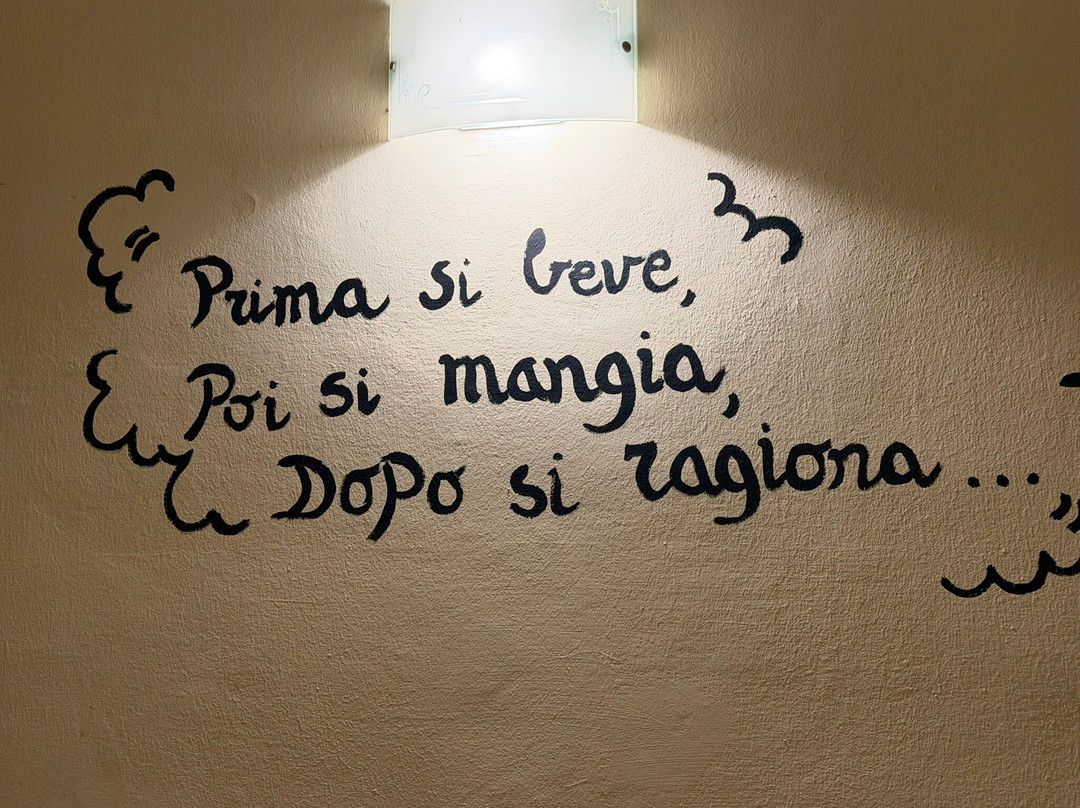 Prima si beve,
Poi si mangia,
Dopo si ragiona...